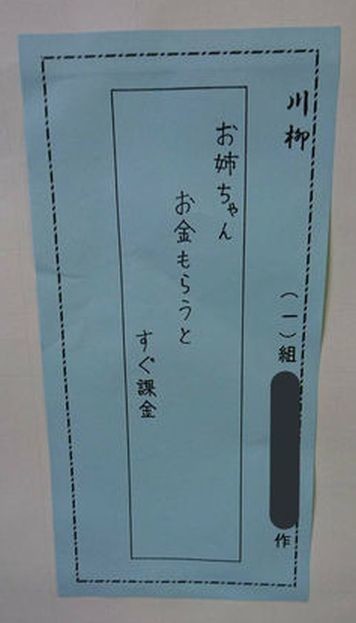 川柳
（一）組
作
お姉ちゃん
お金もらうと
すぐ課金